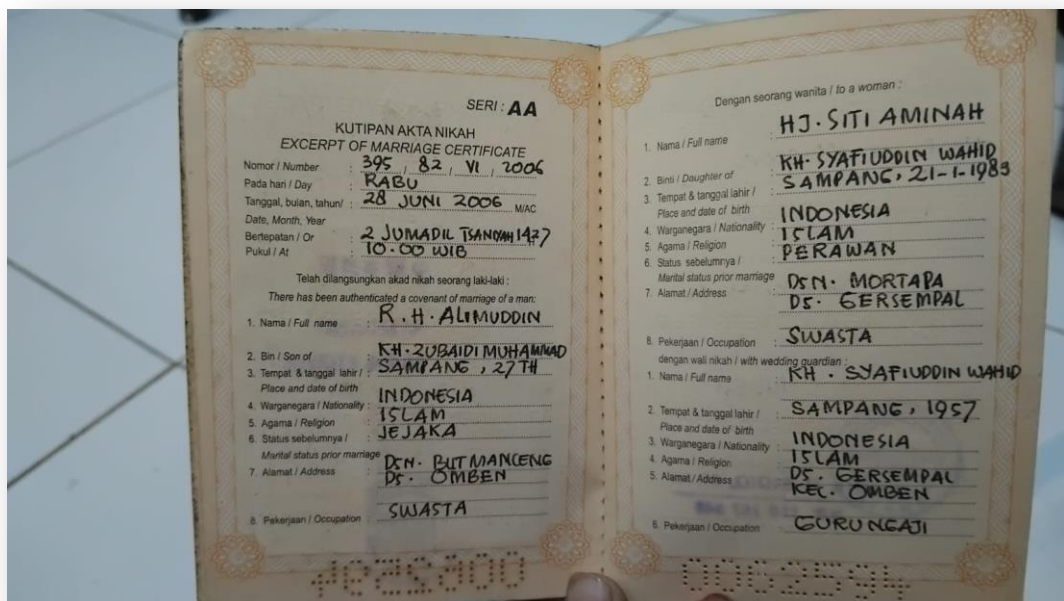 SERI : AA
KUTIPAN AKTA NIKAH
EXCERPT OF MARRIAGE CERTIFICATE
Nomor / Number : 395 / 82 / VI / 2006
Pada hari / Day : RABU
Tanggal, bulan, tahun/ : 28 JUNI 2006 M/AC
Date, Month, Year
Bertepatan / Or : 2 JUMADIL TSANIYAH 1427
Pukul / At : 10.00 WIB
Telah dilangsungkan akad nikah seorang laki-laki :
There has been authenticated a covenant of marriage of a man:
1. Nama / Full name : R.H. ALIMUDDIN
2. Bin / Son of : KH. ZUBAIDI MUHAMMAD
3. Tempat & tanggal lahir / : SAMPANG, 27 TH
Place and date of birth
4. Warganegara / Nationality : INDONESIA
5. Agama / Religion : ISLAM
6. Status sebelumnya / : JEJAKA
Marital status prior marriage
7. Alamat / Address : DSN. BUT MANCENG
DS. OMBEN
8. Pekerjaan / Occupation : SWASTA
Dengan seorang wanita / to a woman :
1. Nama / Full name : HJ. SITI AMINAH
2. Binti / Daughter of : KH. SYAFIUDDIN WAHID
3. Tempat & tanggal lahir / : SAMPANG, 21-1-1983
Place and date of birth
4. Warganegara / Nationality : INDONESIA
5. Agama / Religion : ISLAM
6. Status sebelumnya / : PERAWAN
Marital status prior marriage
7. Alamat / Address : DSN. MORTAPA
DS. GERSEMPAL
8. Pekerjaan / Occupation : SWASTA
dengan wali nikah / with wedding guardian :
1. Nama / Full name : KH. SYAFIUDDIN WAHID
2. Tempat & tanggal lahir / : SAMPANG, 1957
Place and date of birth
3. Warganegara / Nationality : INDONESIA
4. Agama / Religion : ISLAM
5. Alamat / Address : DS. GERSEMPAL
KEC. OMBEN
6. Pekerjaan / Occupation : GURU NGAJI